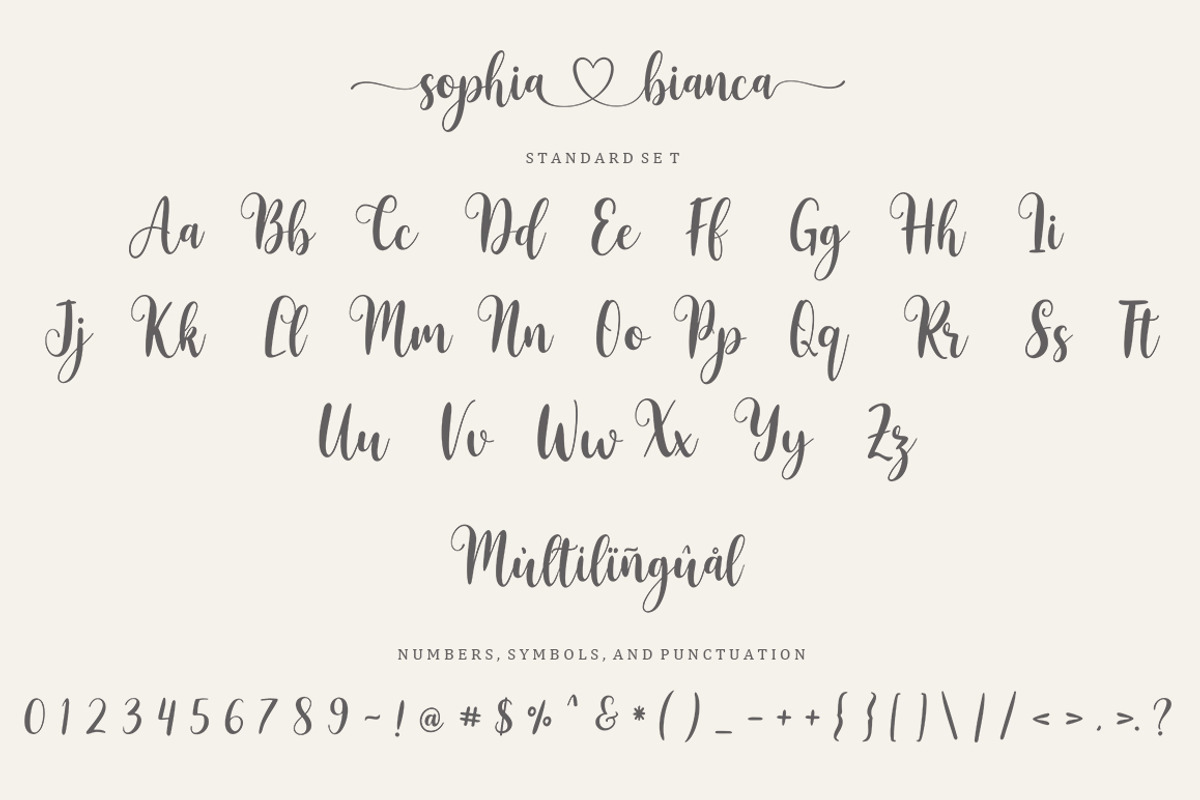 sophia ♡ bianca
STANDARD SET
Aa Bb Cc Dd Ee Ff Gg Hh Ii
Jj Kk Ll Mm Nn Oo Pp Qq Rr Ss Tt
Uu Vv Ww Xx Yy Zz
Mùltilïñgûål
NUMBERS, SYMBOLS, AND PUNCTUATION
0 1 2 3 4 5 6 7 8 9 ~ ! @ # $ % ^ & * ( ) _ - + + { } [ ] \ | / < > . >. ?